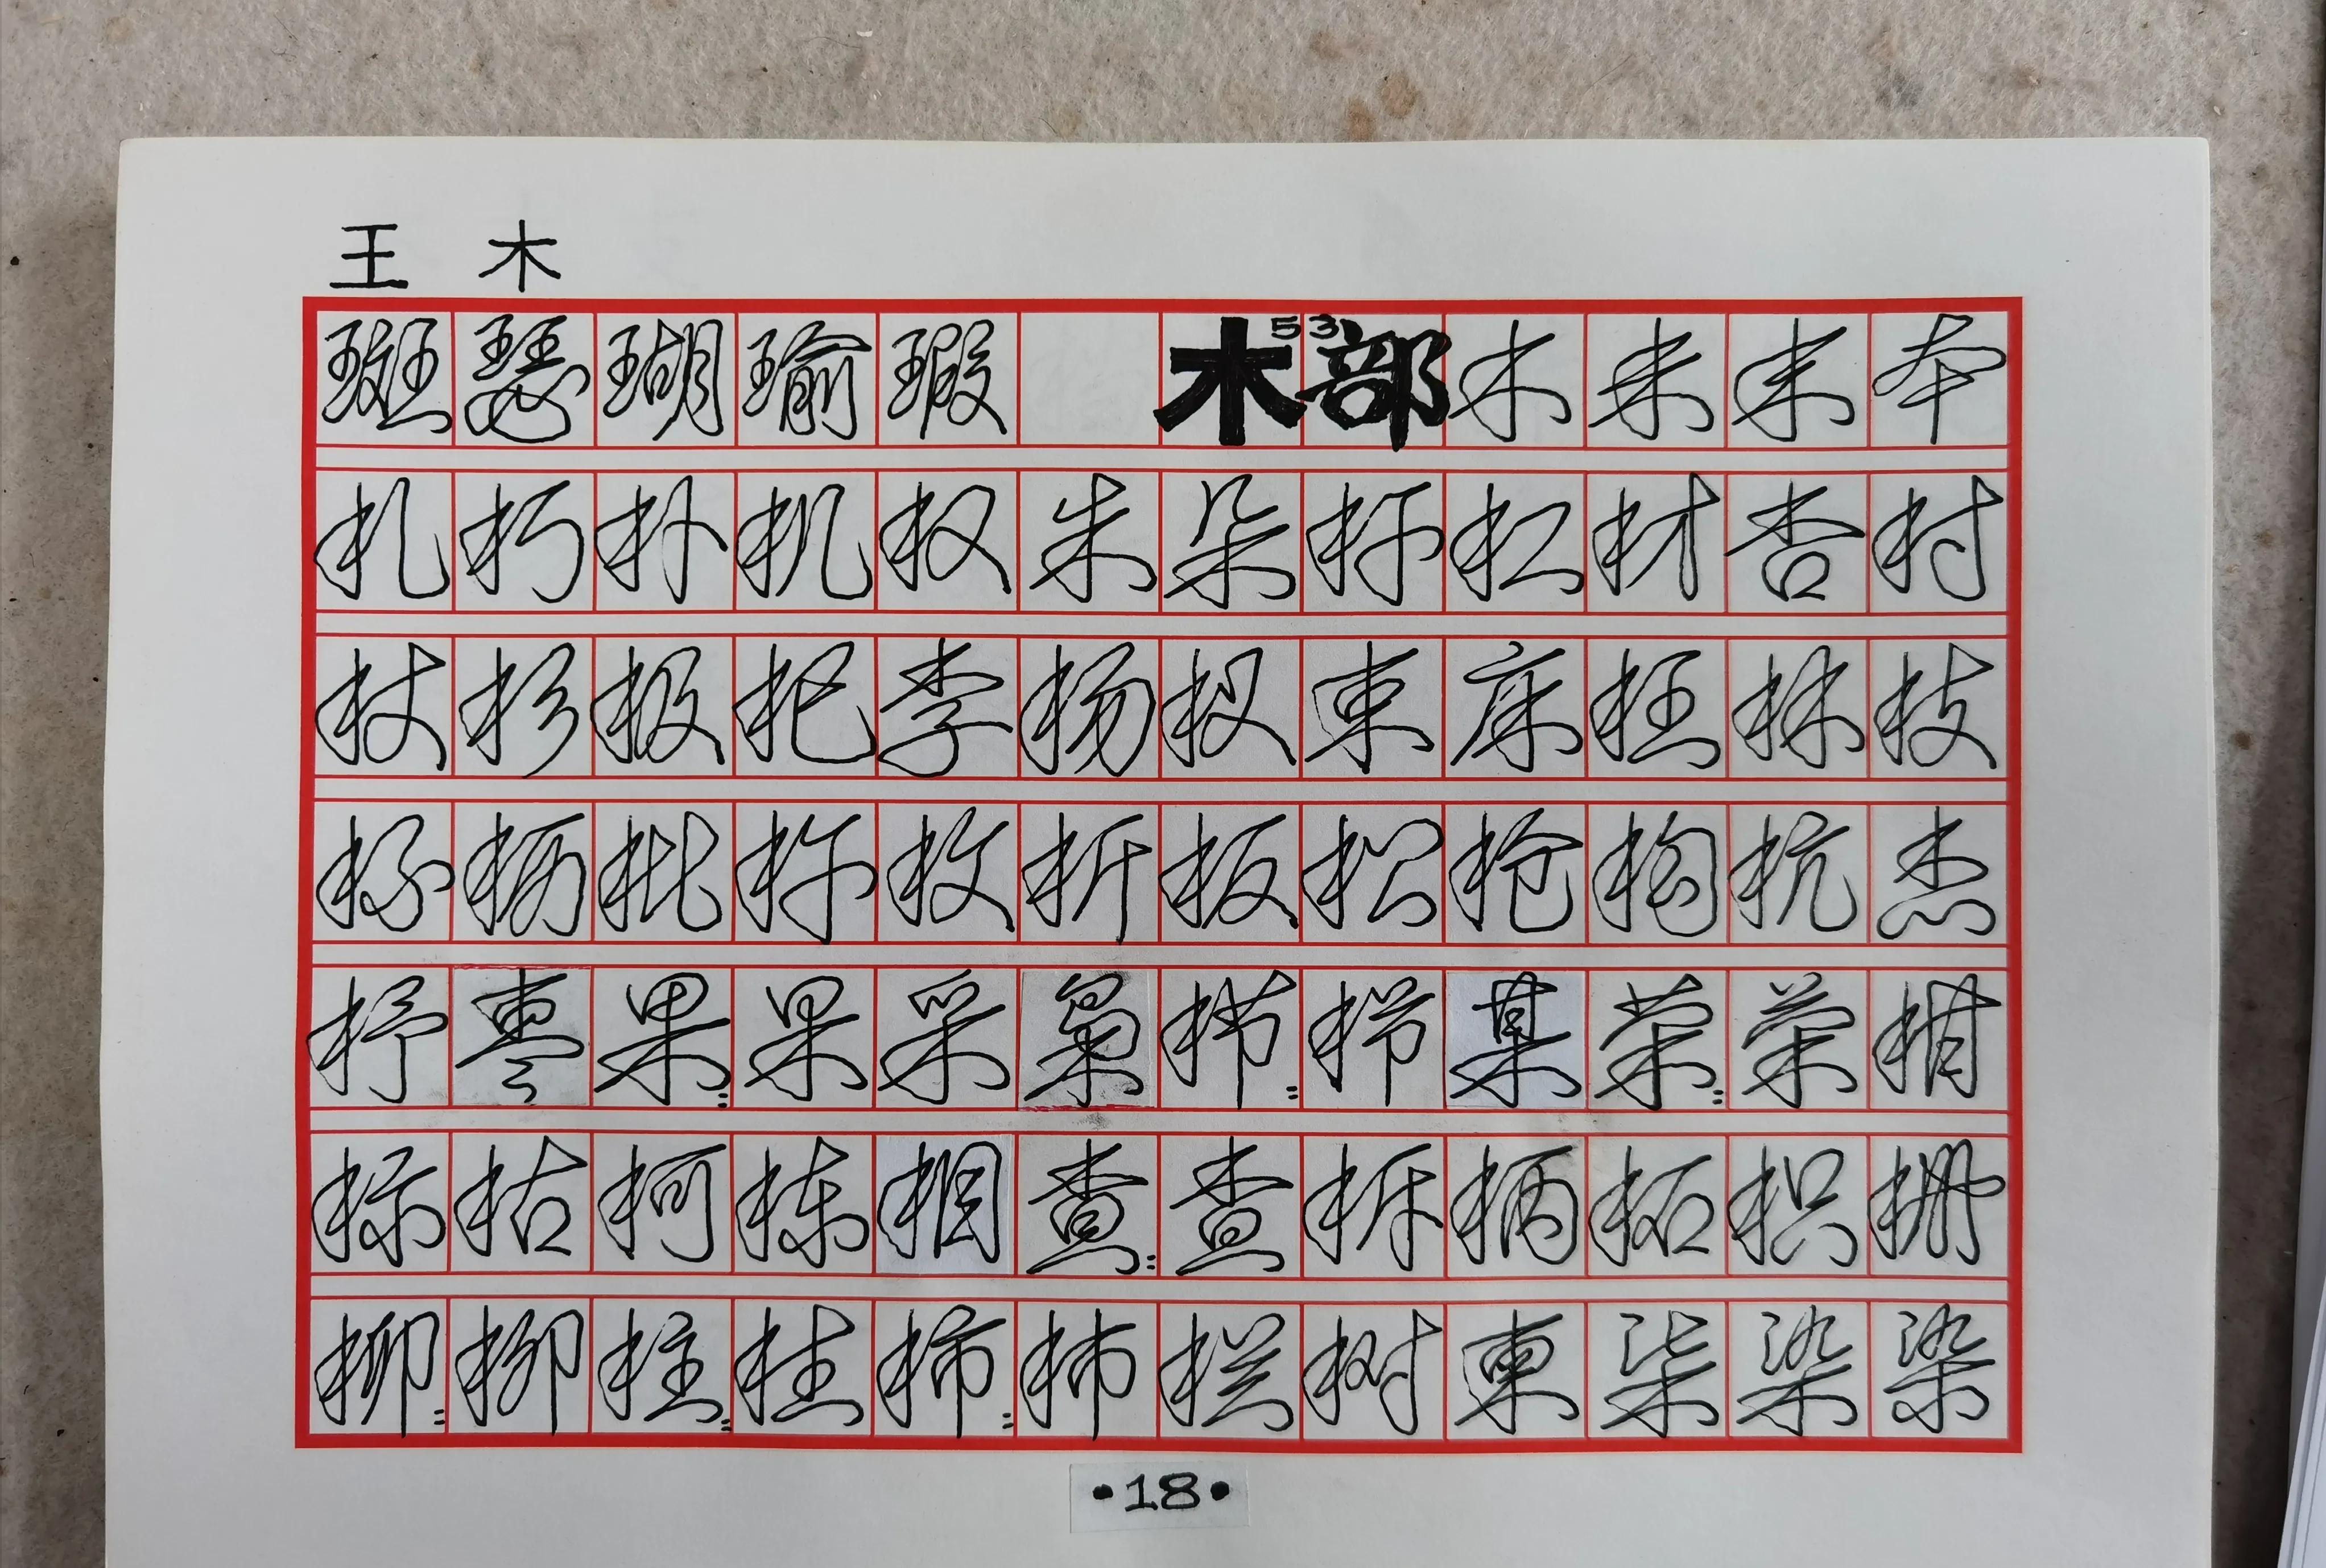 王 木
斑 瑟 瑚 瑜 瑕 木 53 部 木 未 末 本
札 朽 朴 机 权 朱 朵 杆 杠 材 杏 村
杖 杉 极 杞 李 杨 杈 束 床 枉 林 枝
杯 柜 枇 杵 枚 析 板 松 枪 构 杭 杰
杼 枣 果 果 采 枭 栉 栉 某 荣 荣 楷
标 枯 柯 栋 相 查 查 柝 柄 柘 枳 栅
柳 柳 柱 柱 柿 柿 栏 树 柬 柒 染 染
·18·